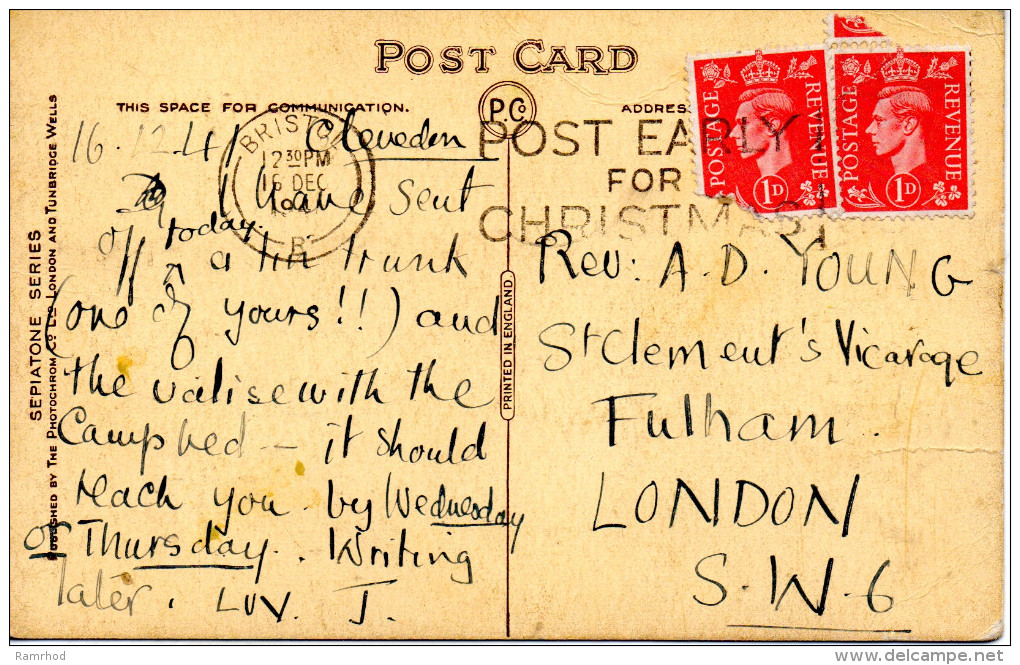 POST CARD
THIS SPACE FOR COMMUNICATION.
P.Co
ADDRESS
16.12.41 Clevedon
BRISTOL
12 30 PM
16 DEC
POST EARLY
FOR
CHRISTMAS
POSTAGE REVENUE
1D
POSTAGE REVENUE
1D
I have sent
off today a tin trunk
(one of yours!!) and
the valise with the
Camp bed – it should
reach you by Wednesday
or Thursday. Writing
later. Luv. J.
Rev: A. D. YOUNG
St Clement's Vicarage
Fulham.
LONDON
S.W.6
PRINTED IN ENGLAND
SEPIATONE SERIES
PUBLISHED BY THE PHOTOCHROM Co LTD LONDON AND TUNBRIDGE WELLS
Ramrhod
delcampe.net